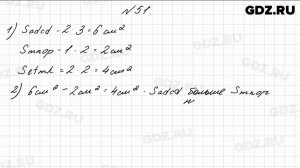 GDZ.RU
№51
1) Sabcd = 2 · 3 = 6 см²
Smnop = 1 · 2 = 2 см²
Setmk = 2 · 2 = 4 см²
2) 6 см² - 2 см² = 4 см² - Sabcd больше Smnop